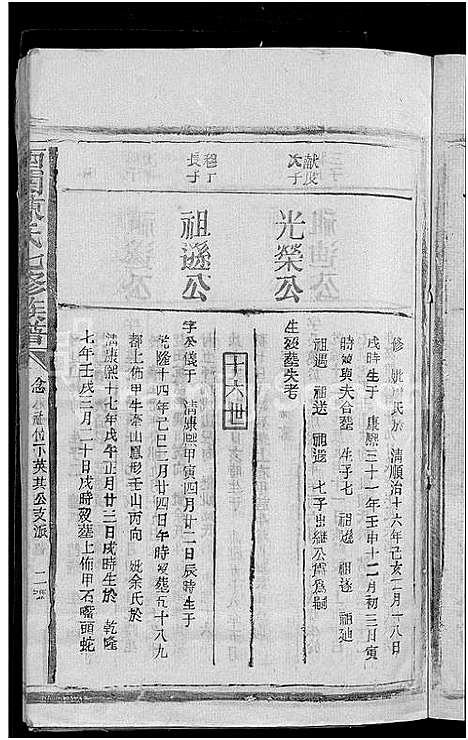 修 妣 氏於 清順治十六年己亥二月十八日
戌時生于 康熙三十一年壬申十二月初三日寅
時歿與夫合塟 生子七 祖遜 祖遂 祖廸
祖遇 祖送 祖遜 七子出繼公 為嗣
獻 次子
光榮公
生歿塟失考
十六世
長子
祖遜公
字公儀于 清康熙甲寅四月廿二日辰時生于
乾隆十四年己巳三月廿四日午時歿塟五十八九
都上佈甲牛牽山鳳形壬山丙向 妣余氏於
清康熙十七年戊午正月廿三日戌時生於 乾隆
七年壬戌三月二十日戌時歿塟上佈甲石嘴頭蛇
陳氏七修族譜
念 公位下英其公支派